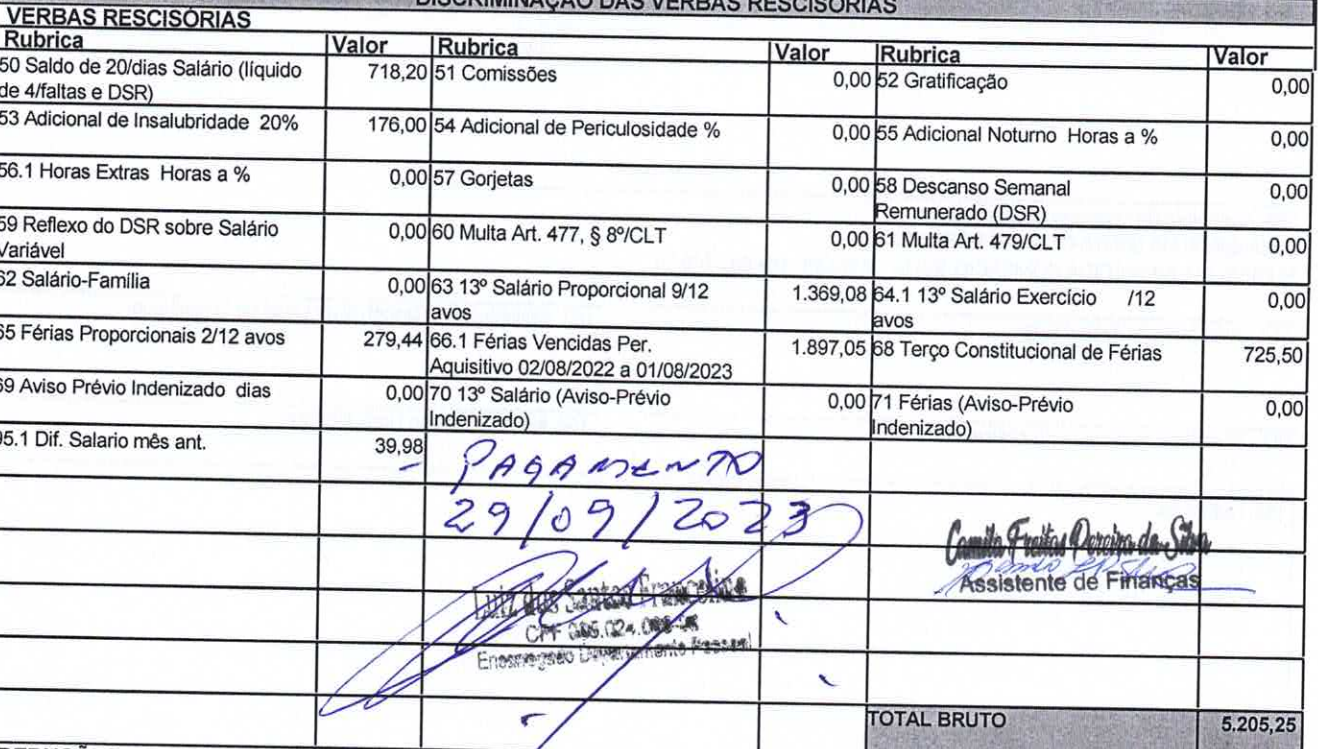 DISCRIMINAÇÃO DAS VERBAS RESCISÓRIAS
VERBAS RESCISÓRIAS
Rubrica Valor Rubrica Valor Rubrica Valor
50 Saldo de 20/dias Salário (líquido de 4/faltas e DSR) 718,20 51 Comissões 0,00 52 Gratificação 0,00
53 Adicional de Insalubridade 20% 176,00 54 Adicional de Periculosidade % 0,00 55 Adicional Noturno Horas a % 0,00
56.1 Horas Extras Horas a % 0,00 57 Gorjetas 0,00 58 Descanso Semanal Remunerado (DSR) 0,00
59 Reflexo do DSR sobre Salário Variável 0,00 60 Multa Art. 477, § 8º/CLT 0,00 61 Multa Art. 479/CLT 0,00
62 Salário-Família 0,00 63 13º Salário Proporcional 9/12 avos 1.369,08 64.1 13º Salário Exercício /12 avos 0,00
65 Férias Proporcionais 2/12 avos 279,44 66.1 Férias Vencidas Per. Aquisitivo 02/08/2022 a 01/08/2023 1.897,05 68 Terço Constitucional de Férias 725,50
69 Aviso Prévio Indenizado dias 0,00 70 13º Salário (Aviso-Prévio Indenizado) 0,00 71 Férias (Aviso-Prévio Indenizado) 0,00
95.1 Dif. Salario mês ant. 39,98
PAGAMENTO
29/09/2023
Camila Freitas Pereira da Silva
Assistente de Finanças
Luiz dos Santos Francelino
CPF
Departamento Pessoal
TOTAL BRUTO 5.205,25